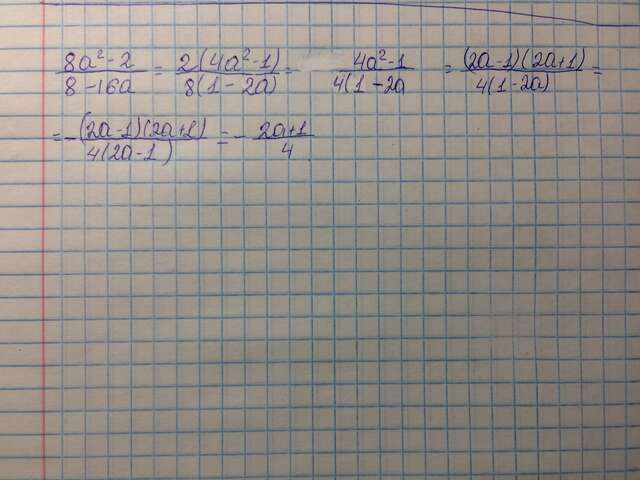 8a²-2 / 8-16a = 2(4a²-1) / 8(1-2a) = 4a²-1 / 4(1-2a = (2a-1)(2a+1) / 4(1-2a) =
= - (2a-1)(2a+1) / 4(2a-1) = - 2a+1 / 4